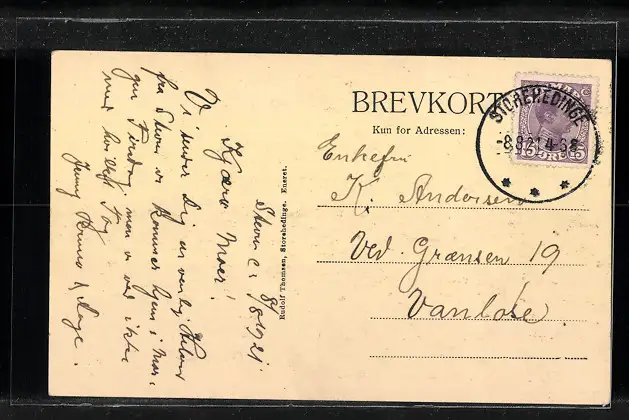 BREVKORT
Kun for Adressen:
STOREHEDINGE
-8.8.21 4-5
DANMARK
15 ØRE 15
Enkefru
K. Andersen
Ved Grænsen 19
Vanløse.
Rudolf Thomsen, Storehedinge. Eneret.
8/8 1921
Kjære Moer!
Vi sender Dig en venlig Hilsen
fra Stevns vi kommer hjem i Mor-
gen men vi ved ikke
med hvilket Tog
Jenny